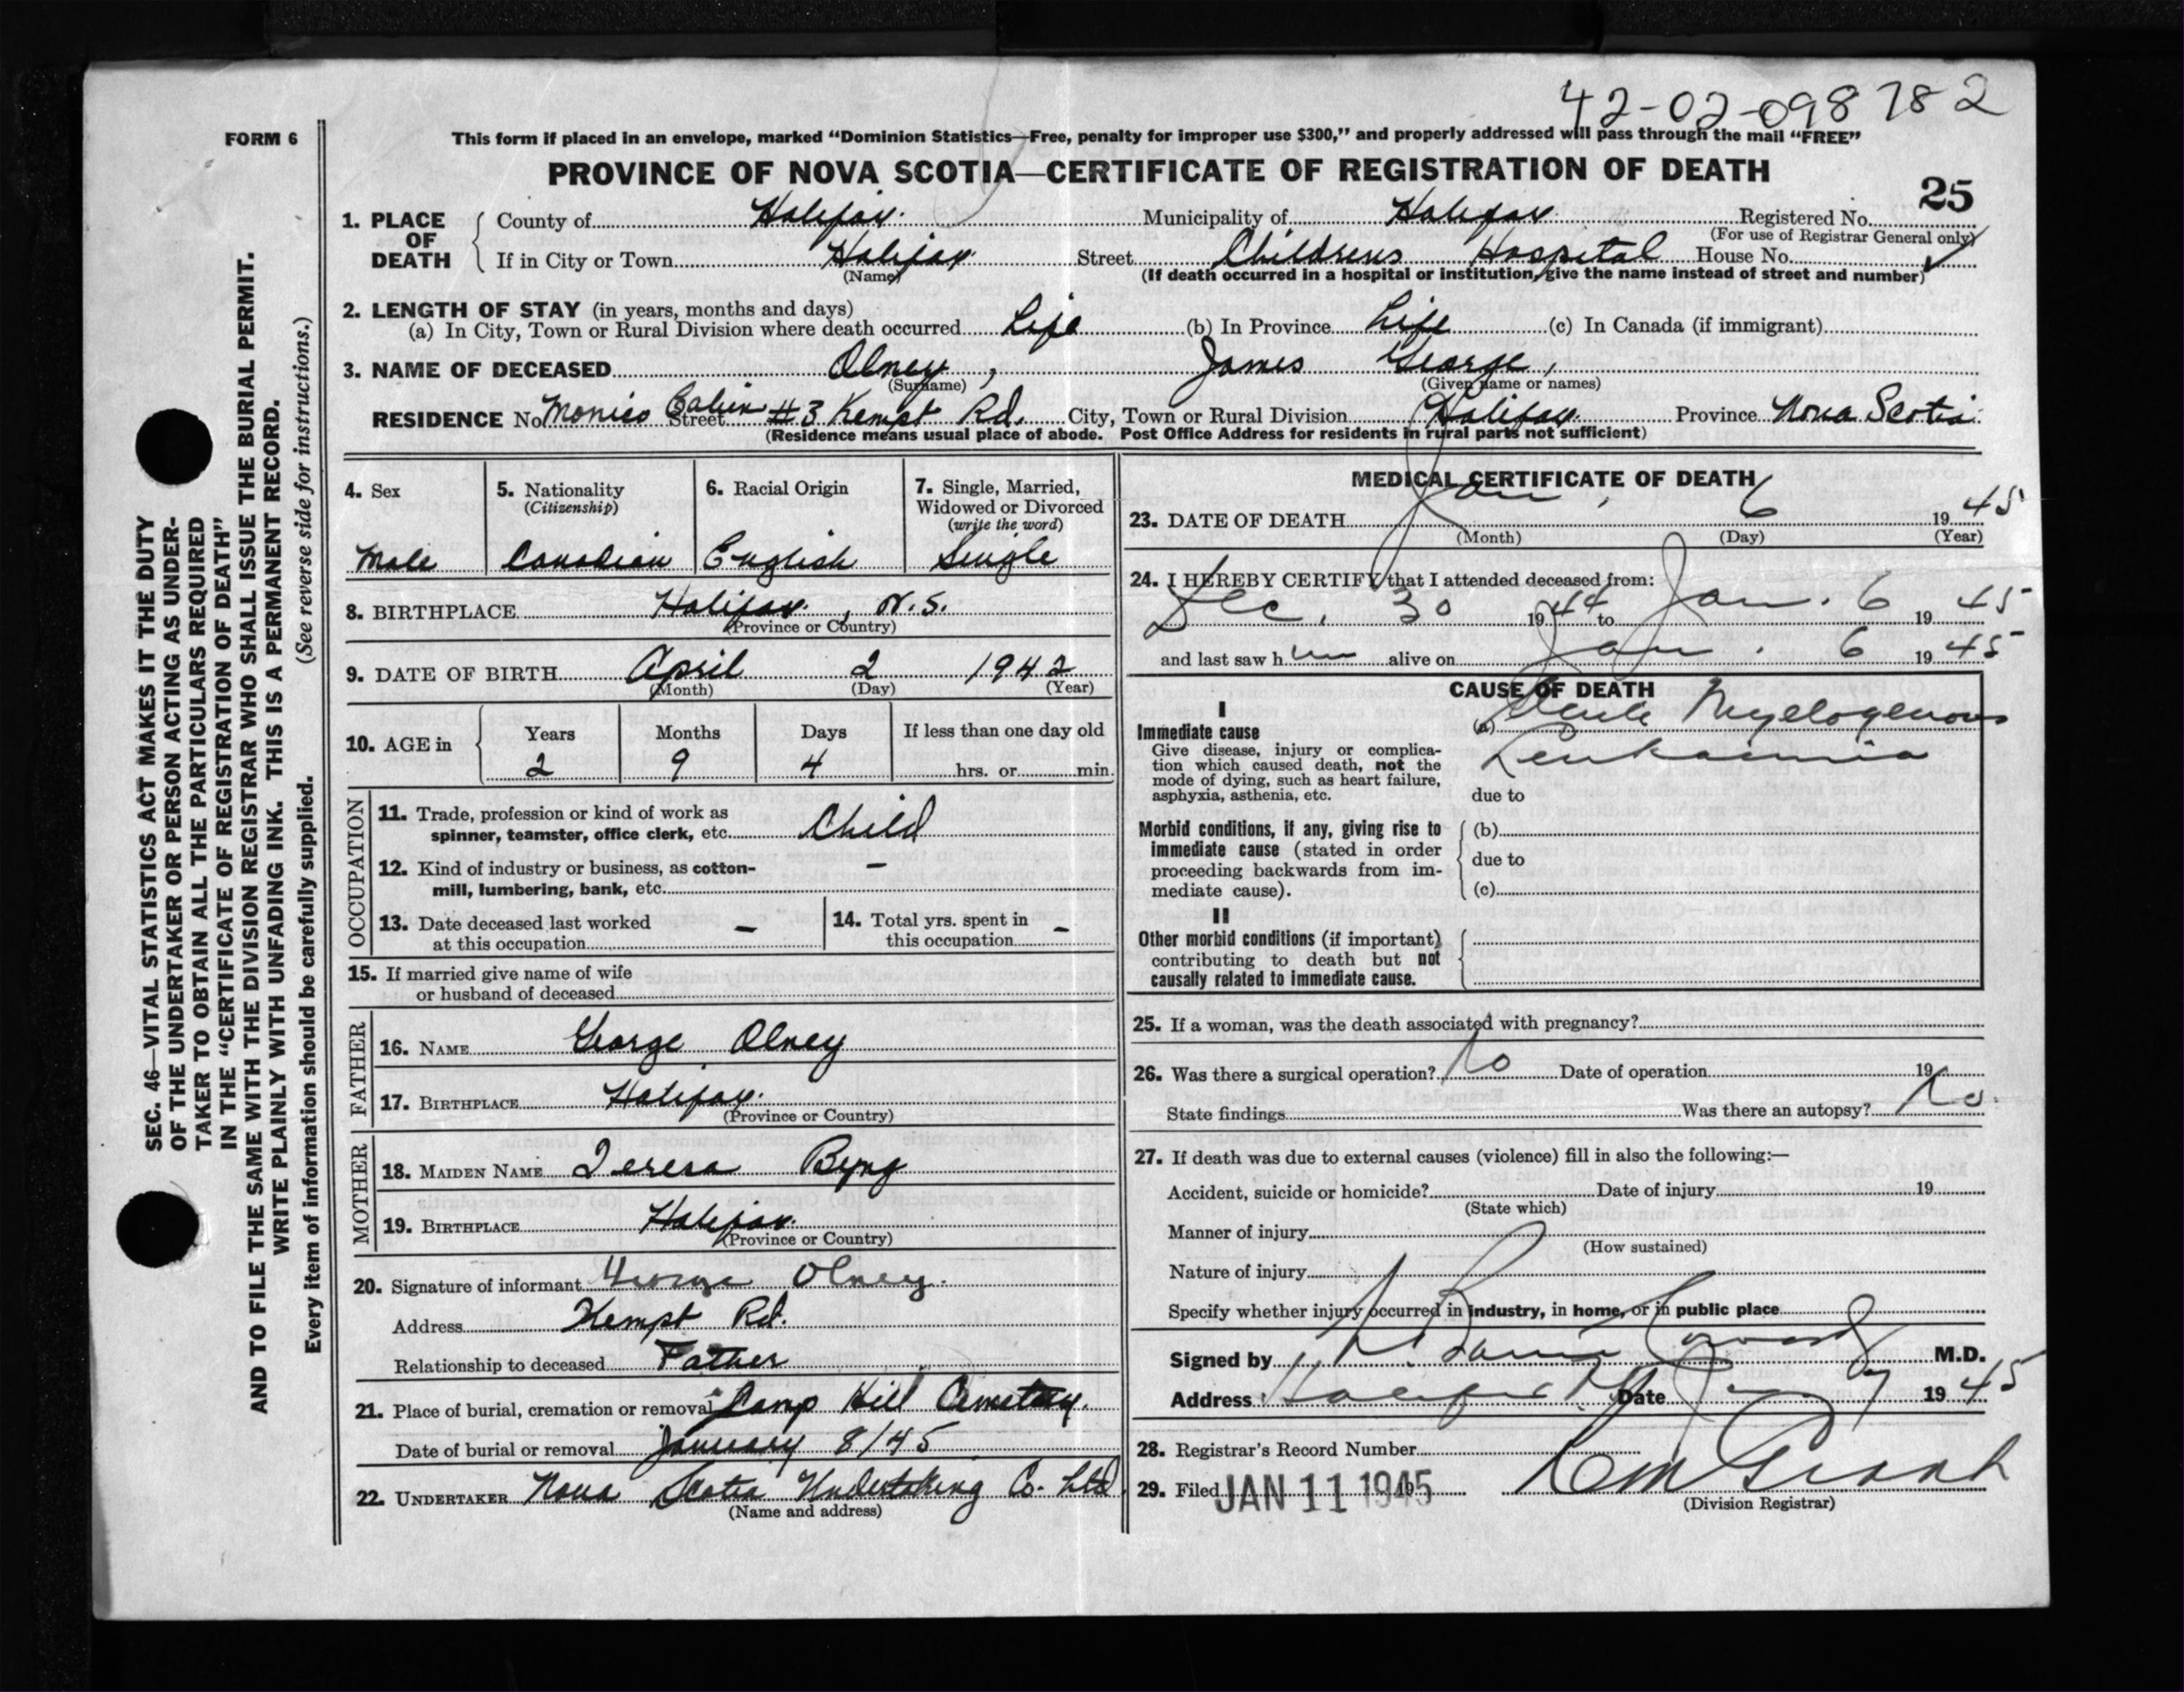 42-02-098782
FORM 6
This form if placed in an envelope, marked “Dominion Statistics—Free, penalty for improper use $300,” and properly addressed will pass through the mail “FREE”
PROVINCE OF NOVA SCOTIA—CERTIFICATE OF REGISTRATION OF DEATH
25
1. PLACE OF DEATH
County of Halifax. Municipality of Halifax Registered No.
(For use of Registrar General only)
If in City or Town Halifax Street Childrens Hospital House No.
(Name) (If death occurred in a hospital or institution, give the name instead of street and number)
2. LENGTH OF STAY (in years, months and days)
(a) In City, Town or Rural Division where death occurred Life (b) In Province Life (c) In Canada (if immigrant)
3. NAME OF DECEASED Olney, James George,
(Surname) (Given name or names)
RESIDENCE No. Cabin Street #3 Kempt Rd. City, Town or Rural Division Halifax Province Nova Scotia.
(Residence means usual place of abode. Post Office Address for residents in rural parts not sufficient)
4. Sex
Male
5. Nationality
(Citizenship)
Canadian
6. Racial Origin
English
7. Single, Married,
Widowed or Divorced
(write the word)
Single
8. BIRTHPLACE Halifax, N.S.
(Province or Country)
9. DATE OF BIRTH April 2 1942
(Month) (Day) (Year)
10. AGE in
Years Months Days If less than one day old
2 9 4 hrs. or min.
OCCUPATION
11. Trade, profession or kind of work as
spinner, teamster, office clerk, etc. Child
12. Kind of industry or business, as cotton- –
mill, lumbering, bank, etc.
13. Date deceased last worked –
at this occupation
14. Total yrs. spent in –
this occupation
15. If married give name of wife
or husband of deceased
FATHER
16. NAME George Olney
17. BIRTHPLACE Halifax.
(Province or Country)
MOTHER
18. MAIDEN NAME Teresa Byng
19. BIRTHPLACE Halifax.
(Province or Country)
20. Signature of informant George Olney.
Address Kempt Rd.
Relationship to deceased Father
21. Place of burial, cremation or removal Camp Hill Cemetery.
Date of burial or removal January 8/45
22. UNDERTAKER Nova Scotia Undertaking Co. Ltd
(Name and address)
MEDICAL CERTIFICATE OF DEATH
23. DATE OF DEATH Jan. 6 1945
(Month) (Day) (Year)
24. I HEREBY CERTIFY that I attended deceased from:
Dec. 30 1944 to Jan. 6 1945
and last saw him alive on Jan. 6 1945
CAUSE OF DEATH
I
Immediate cause
Give disease, injury or complica-
tion which caused death, not the
mode of dying, such as heart failure,
asphyxia, asthenia, etc.
(a) Acute Myelogenous
Leukaemia
due to
Morbid conditions, if any, giving rise to
immediate cause (stated in order
proceeding backwards from im-
mediate cause).
(b)
due to
(c)
II
Other morbid conditions (if important)
contributing to death but not
causally related to immediate cause.
25. If a woman, was the death associated with pregnancy?
26. Was there a surgical operation? No Date of operation 19
State findings Was there an autopsy? No.
27. If death was due to external causes (violence) fill in also the following:—
Accident, suicide or homicide? Date of injury 19
(State which)
Manner of injury
(How sustained)
Nature of injury
Specify whether injury occurred in industry, in home, or in public place
Signed by M.D.
Address Halifax Date 7 1945
28. Registrar's Record Number
29. Filed JAN 11 1945 19
(Division Registrar)
SEC. 46—VITAL STATISTICS ACT MAKES IT THE DUTY
OF THE UNDERTAKER OR PERSON ACTING AS UNDER-
TAKER TO OBTAIN ALL THE PARTICULARS REQUIRED
IN THE “CERTIFICATE OF REGISTRATION OF DEATH”
AND TO FILE THE SAME WITH THE DIVISION REGISTRAR WHO SHALL ISSUE THE BURIAL PERMIT.
WRITE PLAINLY WITH UNFADING INK. THIS IS A PERMANENT RECORD.
Every item of information should be carefully supplied. (See reverse side for instructions.)